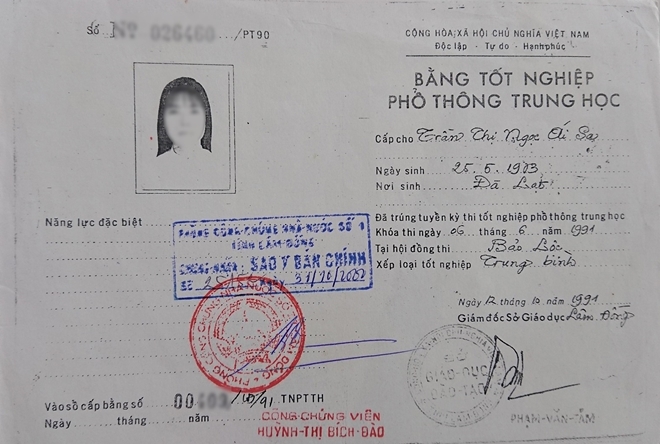 Số
026460 /PT90
Năng lực đặc biệt
PHÒNG CÔNG CHỨNG NHÀ NƯỚC SỐ 1
TỈNH LÂM ĐỒNG
SAO Y BẢN CHÍNH
NGÀY 31/10/2002
Vào sổ cấp bằng số 00 /91 TNPTTH
Ngày tháng năm
CÔNG CHỨNG VIÊN
HUỲNH-THỊ BÍCH-ĐÀO
CỘNG HÒA XÃ HỘI CHỦ NGHĨA VIỆT NAM
Độc lập - Tự do - Hạnh phúc
BẰNG TỐT NGHIỆP
PHỔ THÔNG TRUNG HỌC
Cấp cho Trần Thị Ngọc Ái Sa
Ngày sinh 25.5.1973
Nơi sinh Đà Lạt
Đã trúng tuyển kỳ thi tốt nghiệp phổ thông trung học
Khóa thi ngày 06 tháng 6 năm 1991
Tại hội đồng thi Bảo Lộc
Xếp loại tốt nghiệp Trung bình
Ngày 12 tháng 10 năm 1991
Giám đốc Sở Giáo dục Lâm Đồng
GIÁO-DỤC
ĐÀO-TẠO
PHẠM-VĂN-CẨM